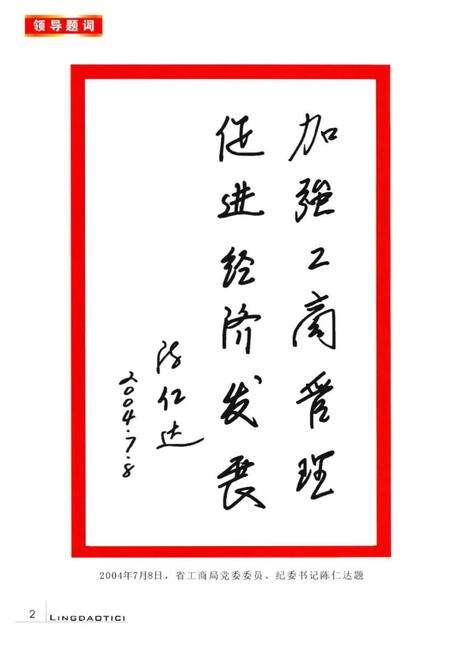 领导题词
加強工商管理
促进经济发展
陈仁达
2004.7.8
2004年7月8日，省工商局党委委员、纪委书记陈仁达题
2 LINGDAOTICI